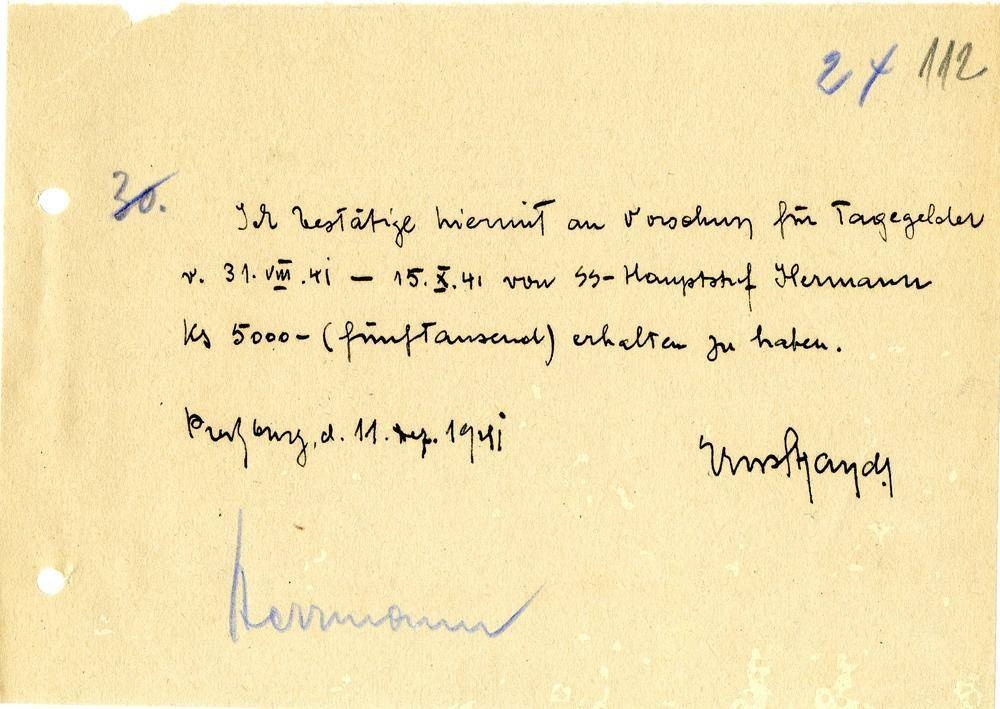 24 112
30.
Ich bestätige hiermit an Vorschuss für Tagegelder
v. 31. VIII. 41 – 15. X. 41 von SS-Hauptstuf Hermann
Ks 5000- (fünftausend) erhalten zu haben.
Preßburg, d. 11. Dez. 1941
Herrmann